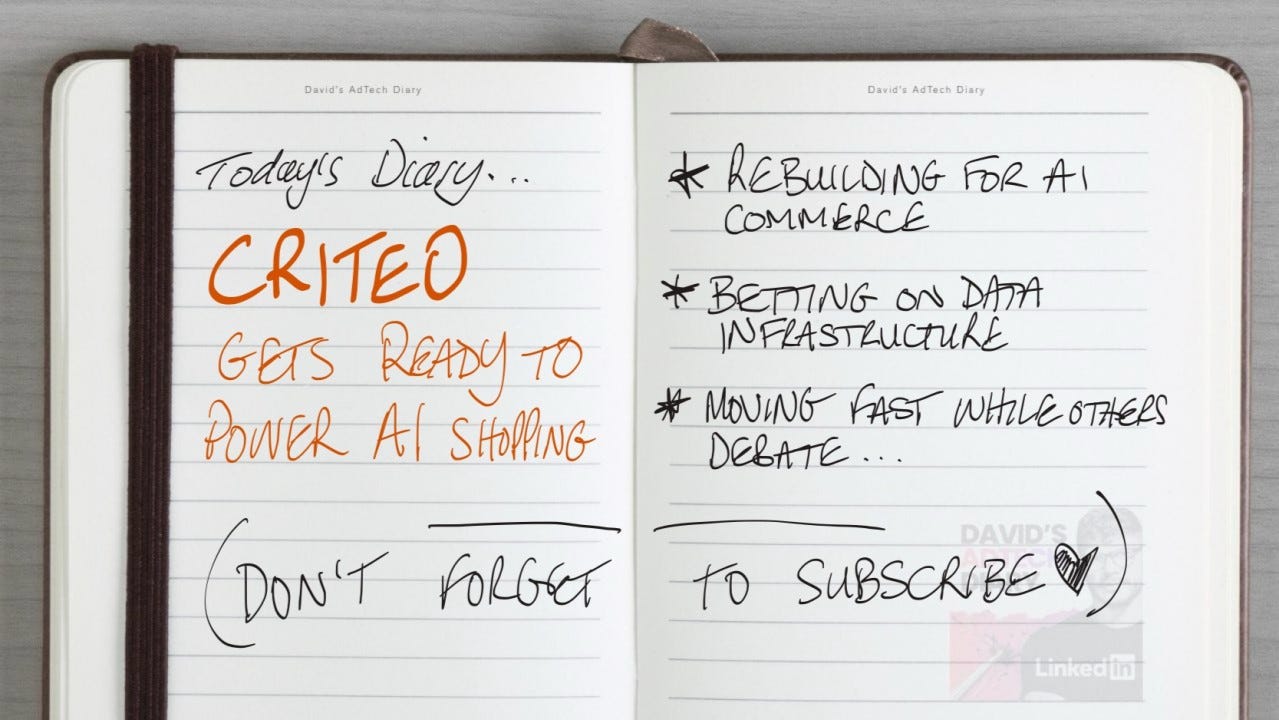 David's AdTech Diary
Today's Diary...
CRITEO
GETS READY TO
POWER AI SHOPPING
David's AdTech Diary
* REBUILDING FOR AI
COMMERCE
* BETTING ON DATA
INFRASTRUCTURE
* MOVING FAST WHILE OTHERS
DEBATE...
(DON'T FORGET TO SUBSCRIBE ♥)
DAVID'S
ADTECH
LinkedIn